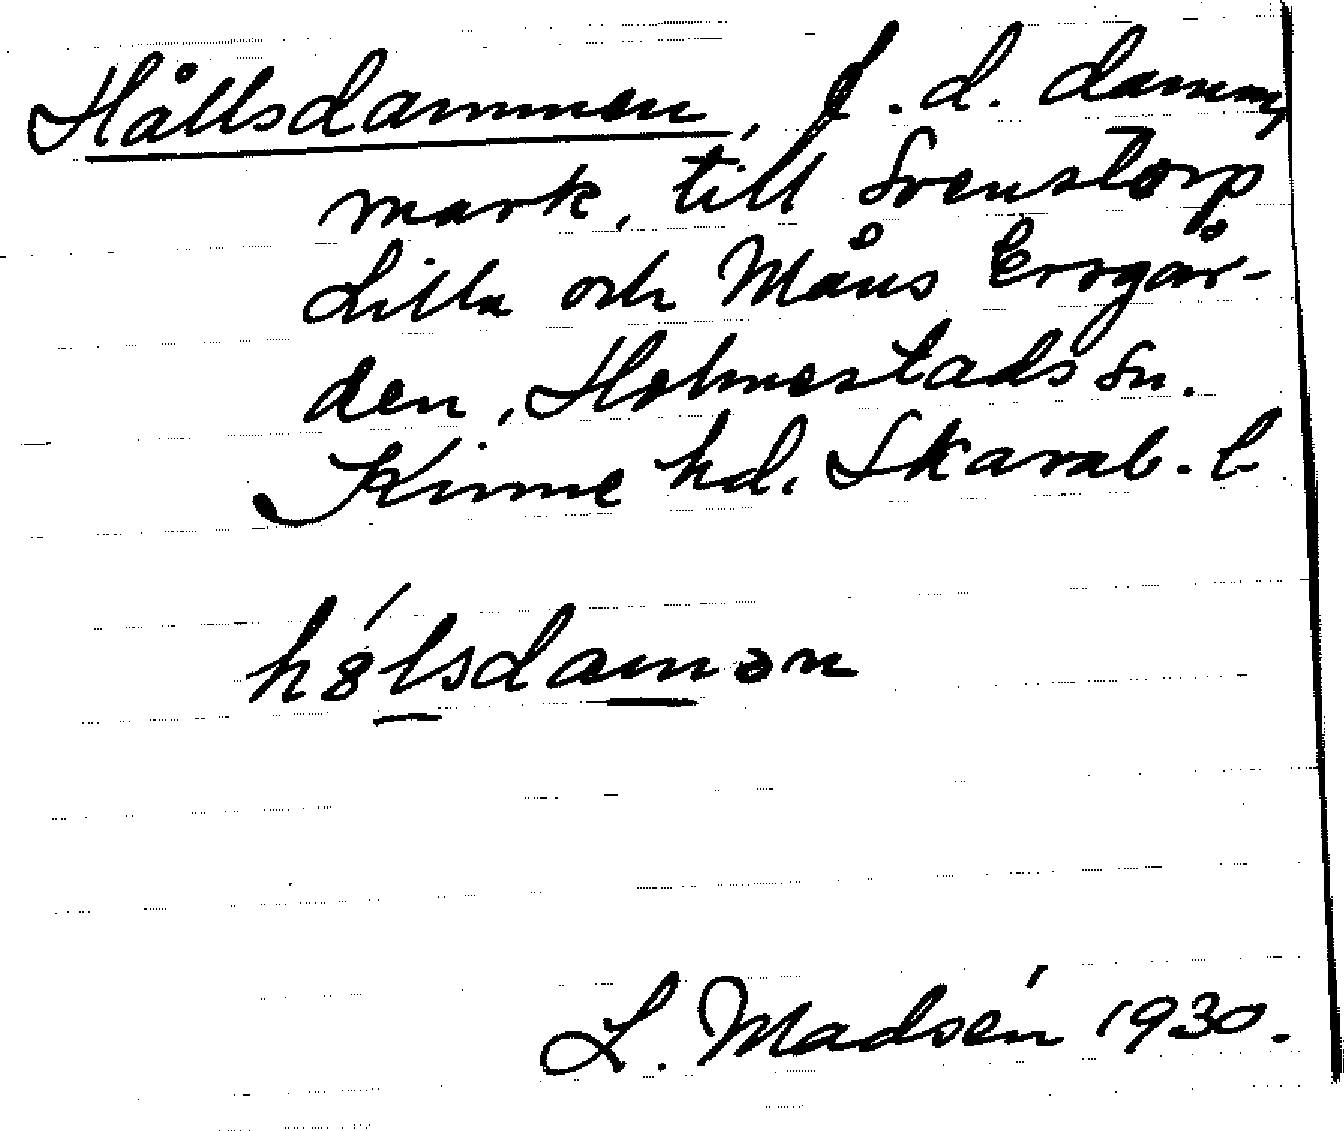 Hållsdammen, f. d. damm,
mark, till Svenstorp
Lilla och Måns Ersgår-
den, Holmestads sn.
Kinne hd. Skarab. l
hålsdamən
L. Madsén 1930.